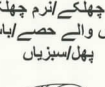 چھلکے/نرم چھلکے
والے حصے/باسی
پھل/سبزیاں